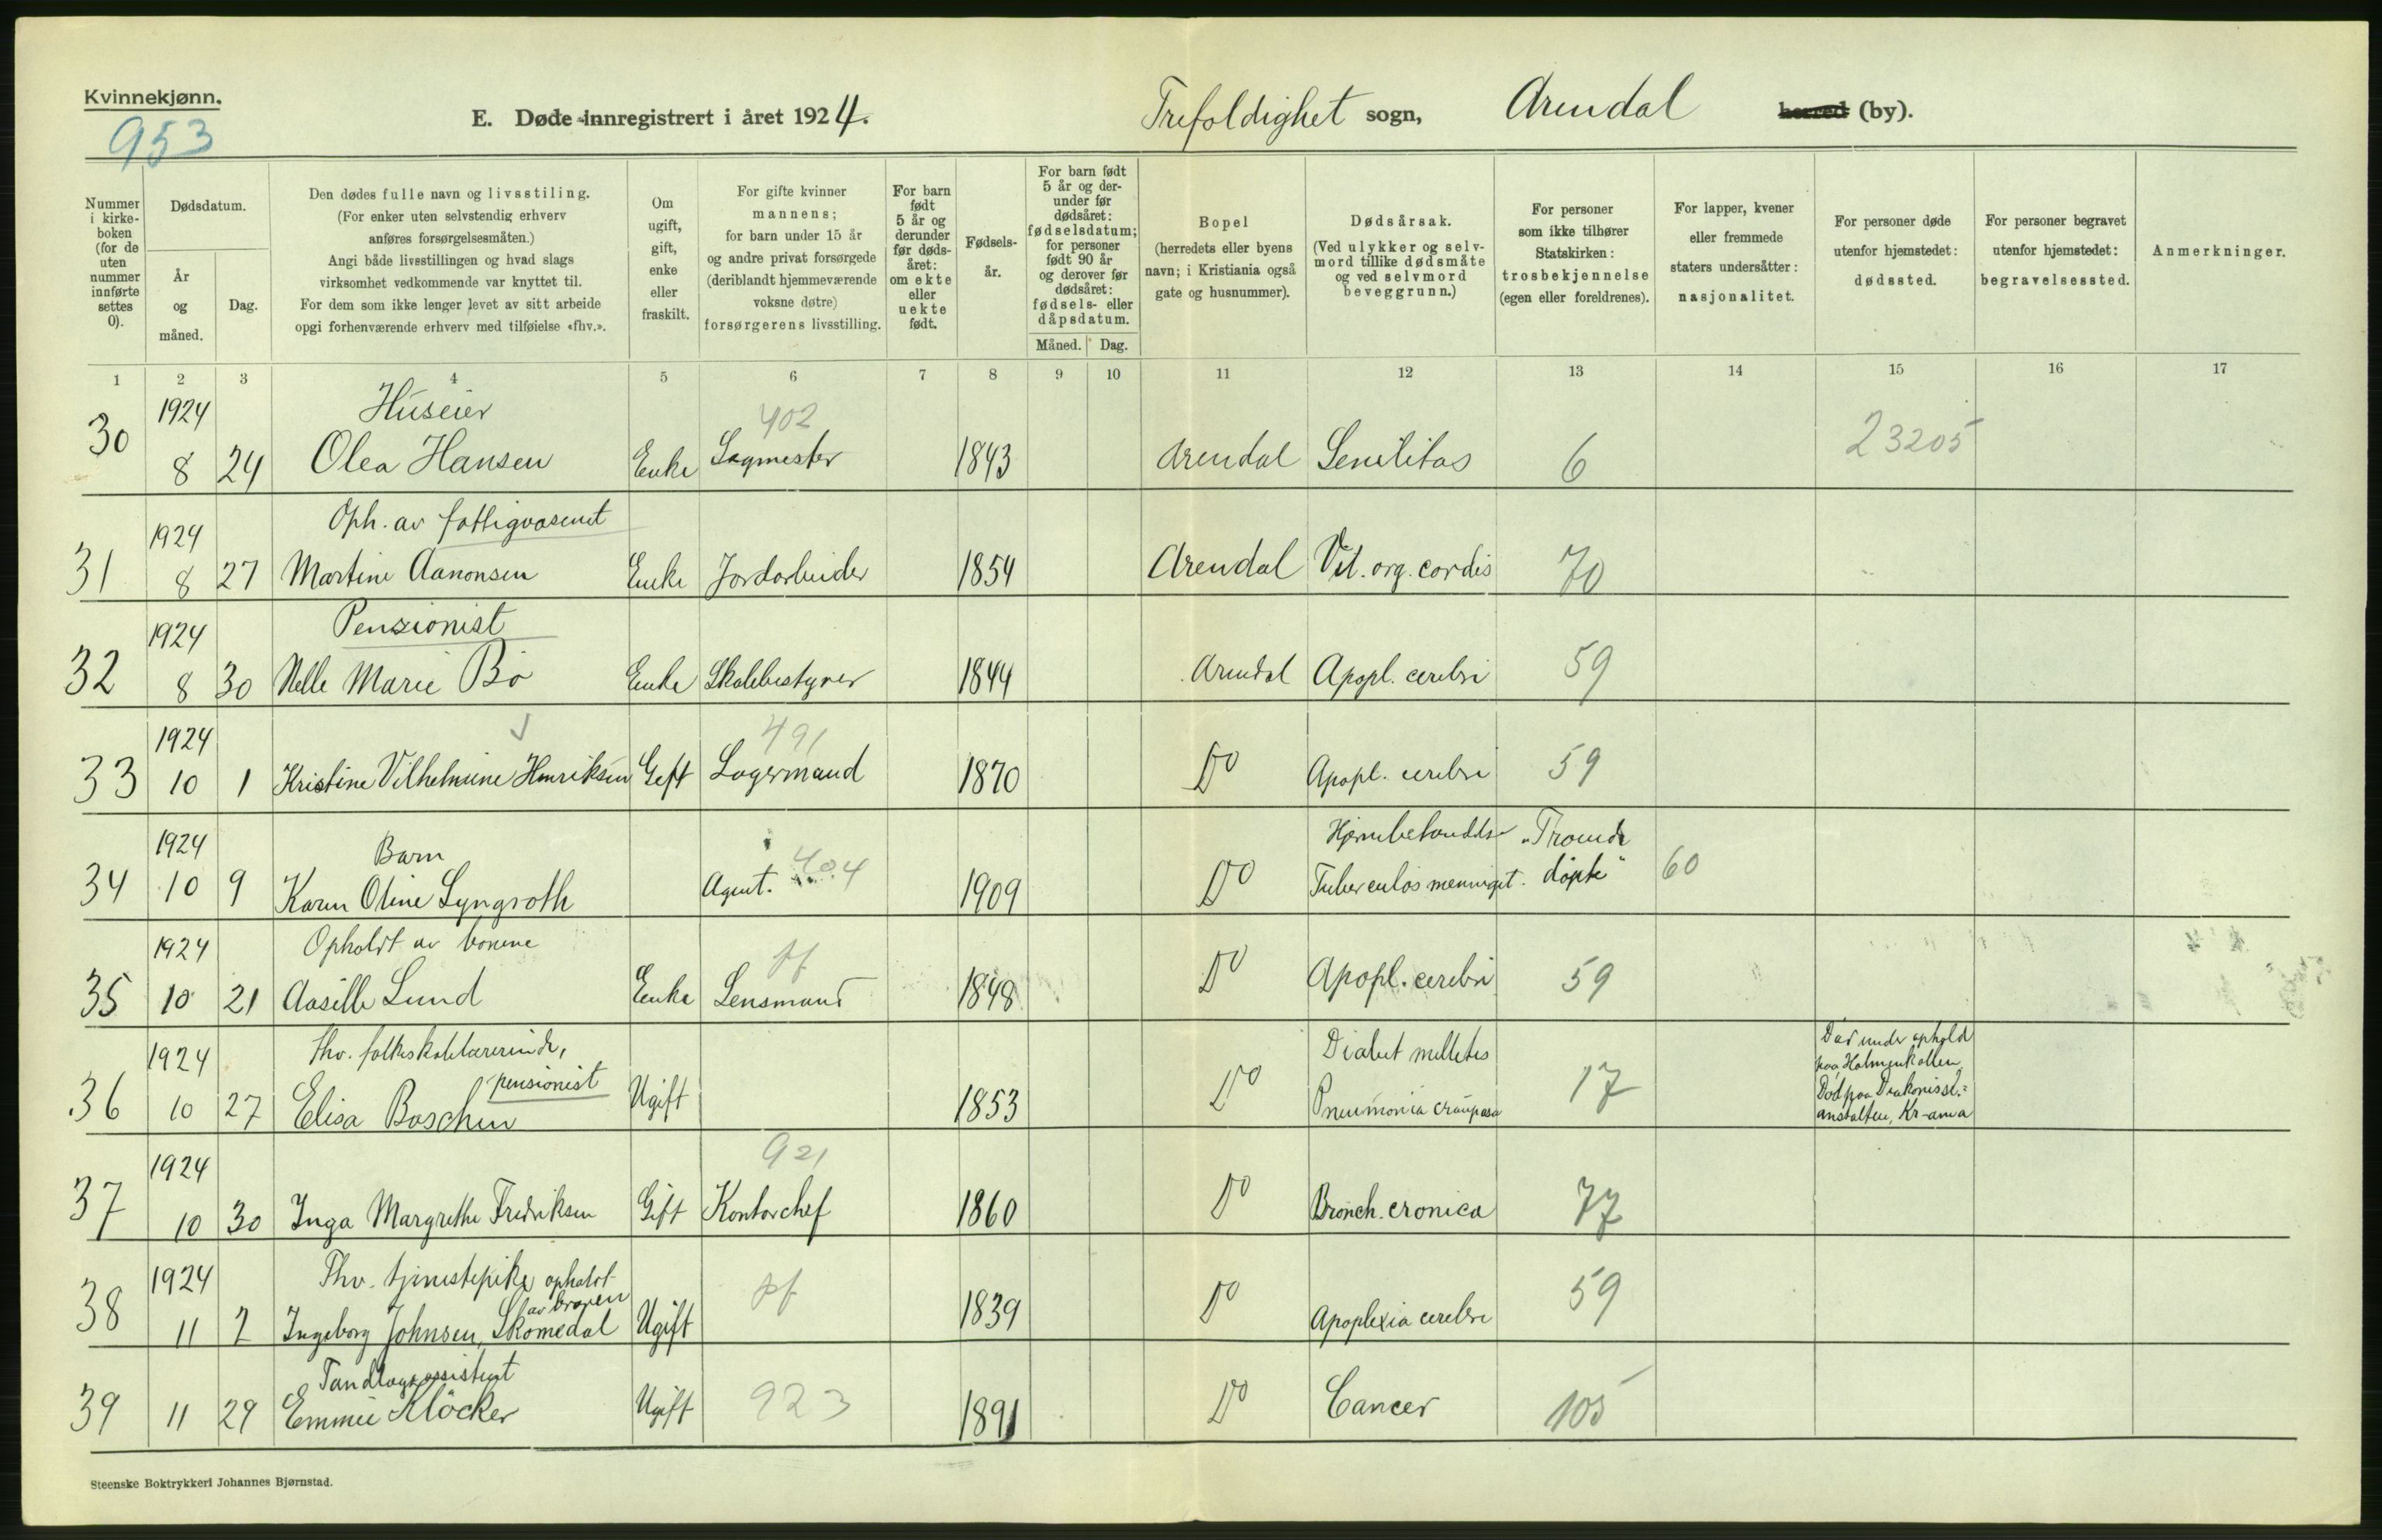 Kvinnekjønn.
953
E. Døde innregistrert i året 1924.
Trefoldighet sogn, Arendal herred (by).
Nummer i kirke-boken (for de uten nummer innførte settes 0).
Dødsdatum.
År og måned.
Dag.
Den dødes fulle navn og livsstiling.
(For enker uten selvstendig erhverv
anføres forsørgelsesmåten.)
Angi både livsstillingen og hvad slags
virksomhet vedkommende var knyttet til.
For dem som ikke lenger levet av sitt arbeide
opgi forhenværende erhverv med tilføielse «fhv.».
Om
ugift,
gift,
enke
eller
fraskilt.
For gifte kvinner
mannens;
for barn under 15 år
og andre privat forsørgede
(deriblandt hjemmeværende
voksne døtre)
forsørgerens livsstilling.
For barn
født
5 år og
derunder
før døds-
året:
om ekte
eller
uekte
født.
Fødsels-
år.
For barn født
5 år og der-
under før
dødsåret:
fødselsdatum;
for personer
født 90 år
og derover før
dødsåret:
fødsels- eller
dåpsdatum.
Måned. Dag.
Bopel
(herredets eller byens
navn; i Kristiania også
gate og husnummer).
Dødsårsak.
(Ved ulykker og selv-
mord tillike dødsmåte
og ved selvmord
beveggrunn.)
For personer
som ikke tilhører
Statskirken:
trosbekjennelse
(egen eller foreldrenes).
For lapper, kvener
eller fremmede
staters undersåtter:
nasjonalitet.
For personer døde
utenfor hjemstedet:
dødssted.
For personer begravet
utenfor hjemstedet:
begravelsessted.
Anmerkninger.
1 2 3 4 5 6 7 8 9 10 11 12 13 14 15 16 17
1924 Huseier 402 23205
30 8 24 Olea Hansen Enke Sagmester 1843 Arendal Senilitas 6
1924 Oph. av fattigvæsenet
31 8 27 Martine Aanonsen Enke Jordarbeider 1854 Arendal Vit. org. cordis 70
1924 Pensionist
32 8 30 Nelle Marie Bö Enke Skolebestyrer 1844 Arendal Apopl. cerebri 59
1924 491
33 10 1 Kristine Vilhelmine Henriksen Gift Lagermand 1870 Do Apopl. cerebri 59
1924 Barn 404 „Troende
34 10 9 Karen Oline Lyngroth Agent. 1909 Do Tuberculos meningit. döpte" 60
1924 Opholdt av
35 10 21 Aasille Lund Enke Lensmand 1848 Do Apopl. cerebri 59
1924 fhv. folkeskolelærerinde, Diabet melletes Død under ophold
paa Holmenkollen.
pensionist Død paa Diakonisse-
36 10 27 Elisa Boschen Ugift 1853 Do Pneumonia crouposa 17 anstalten, Kr-ania
1924 921
37 10 30 Inga Margrethe Fredriksen Gift Kontorchef 1860 Do Bronch. cronica 77
1924 Fhv. tjenestepike opholdt
av
38 11 2 Ingeborg Johnsen, Skomedal Ugift 1839 Do Apoplexia cerebri 59
Tandlægeassistent
39 11 29 Emmie Klöcker Ugift 923 1891 Do Cancer 105
Steenske Boktrykkeri Johannes Bjørnstad.